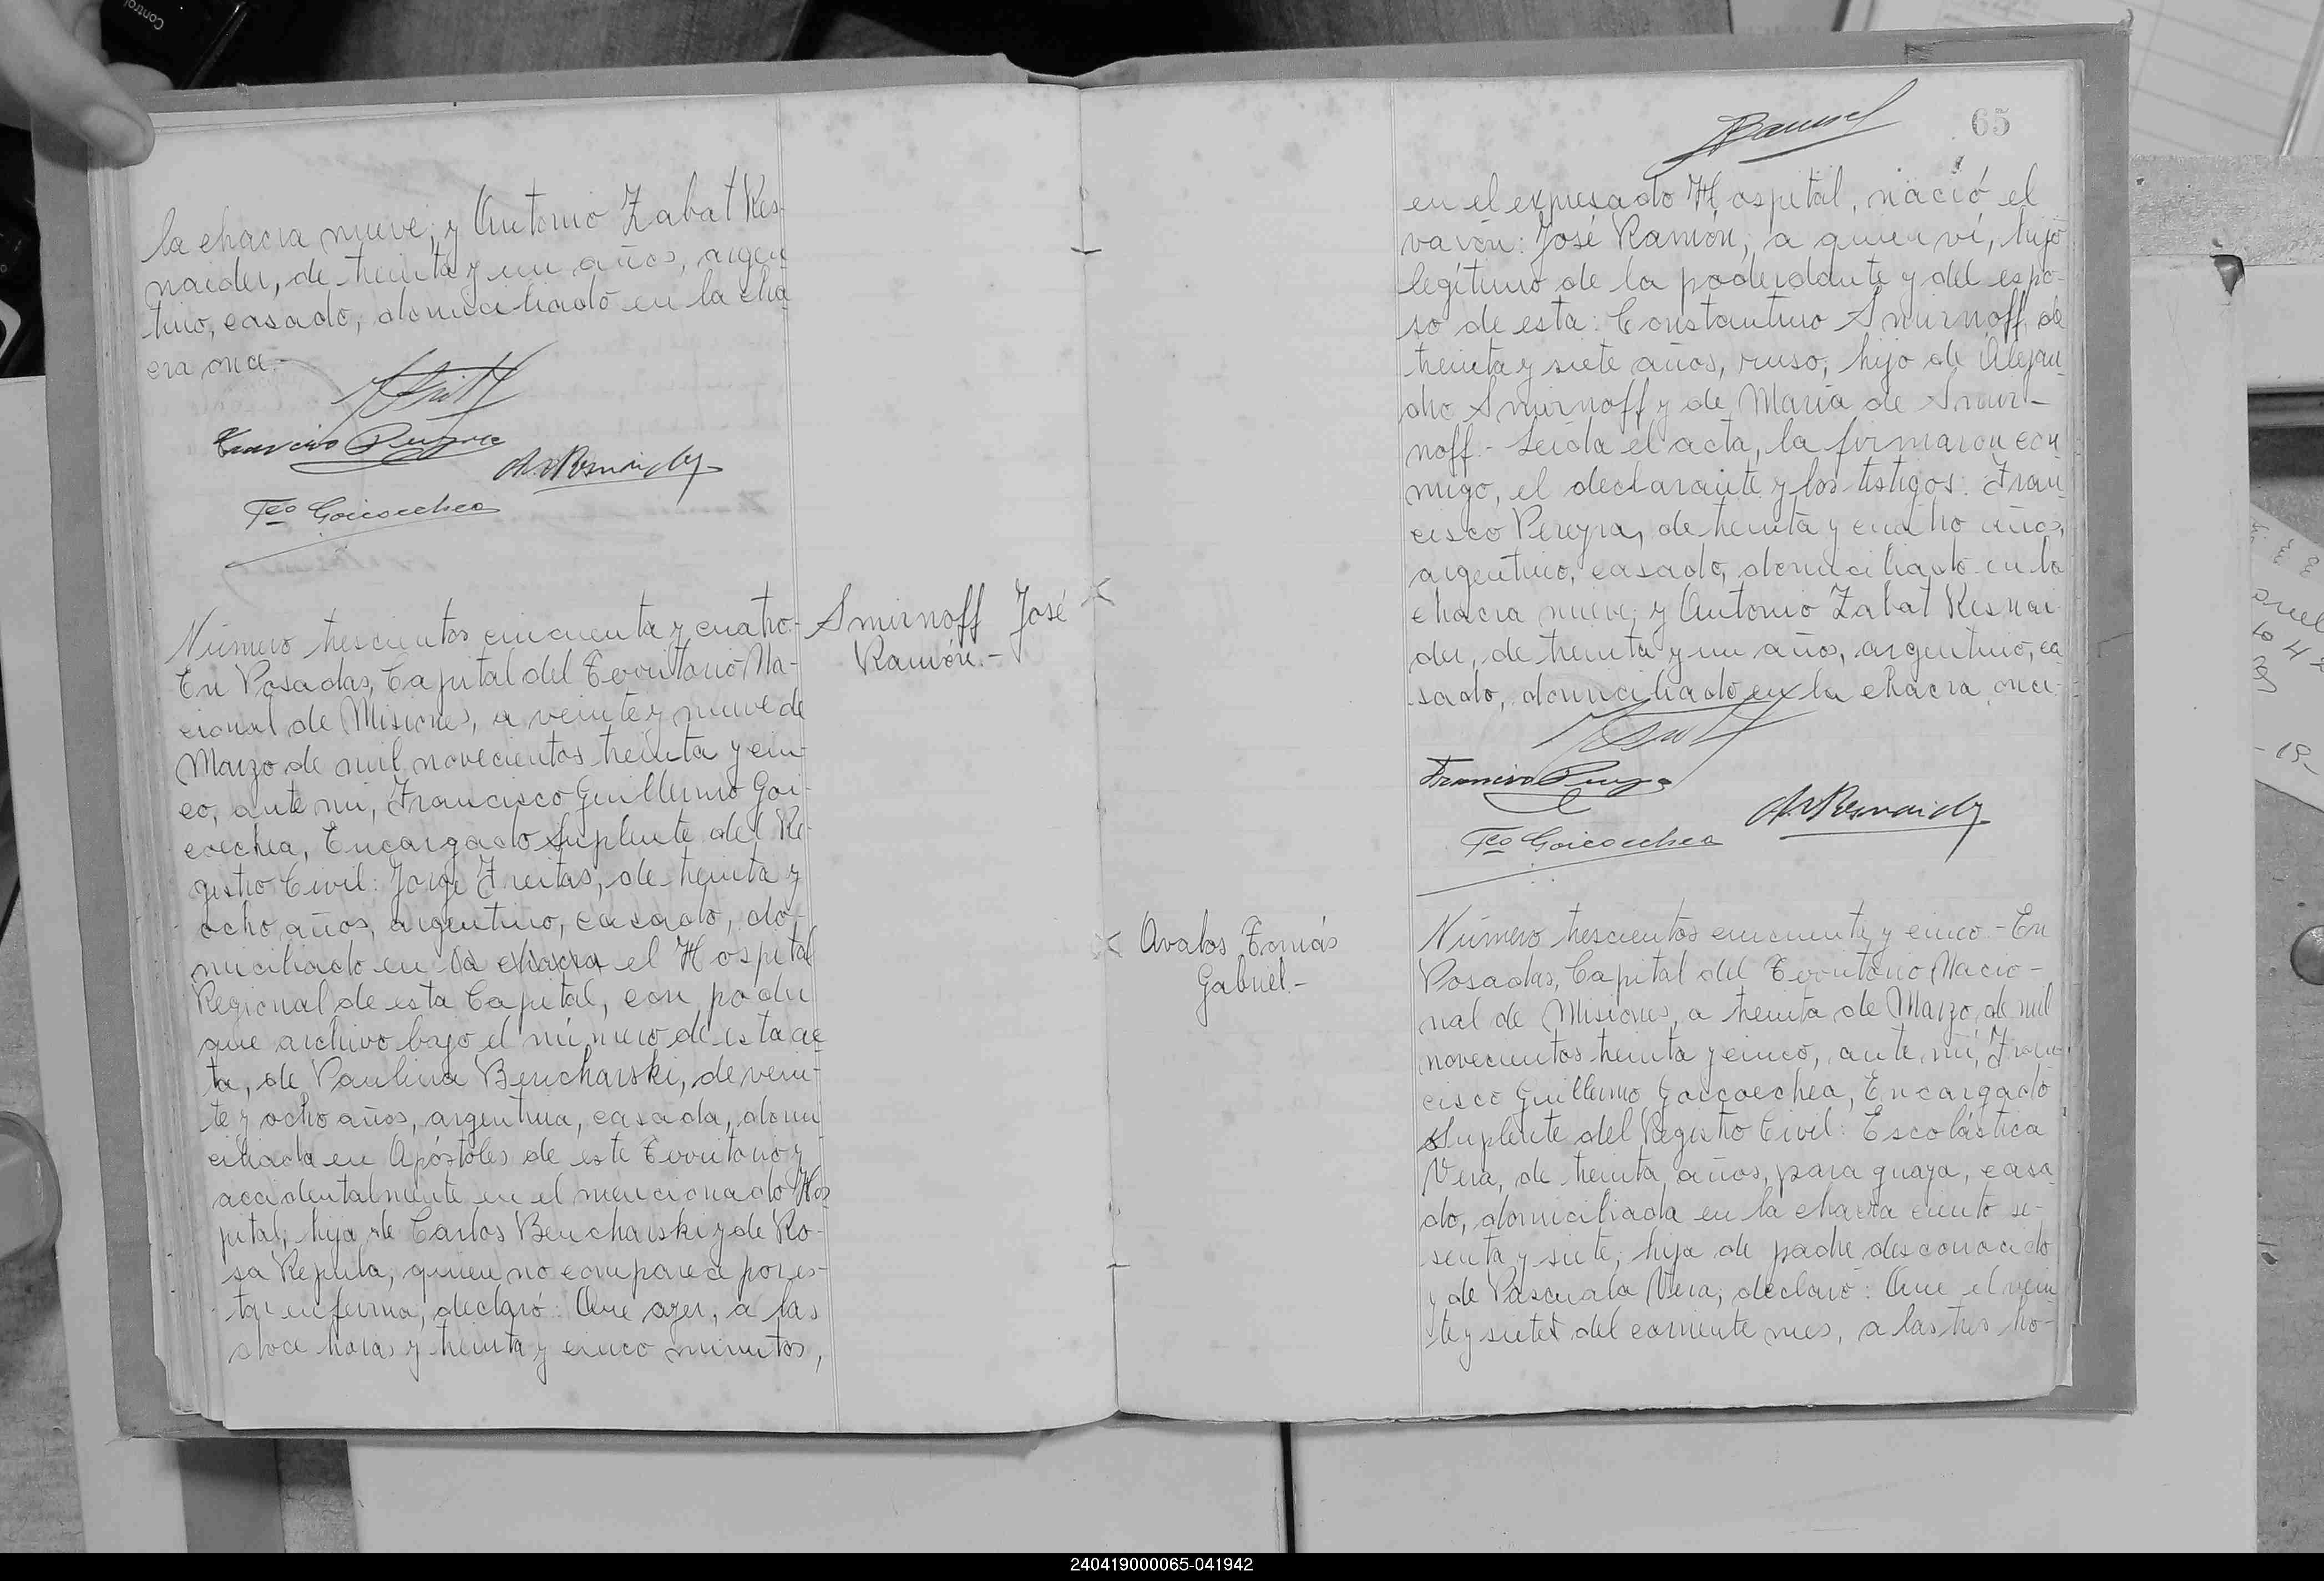 la chacra nueve; y Antonio Zabat Res-
naider, de treinta y un años, argen-
tino, casado, domiciliado en la cha-
cra once.-
Francisco Pereyra
A. Z. Resnaider
Fco Goicoechea
Número trescientos cincuenta y cuatro-
En Posadas, Capital del Territorio Na-
cional de Misiones, a veinte y nueve de
Marzo de mil novecientos treinta y cin-
co, ante mí, Francisco Guillermo Goi-
coechea, Encargado Suplente del Re-
gistro Civil: Jorge Freitas, de treinta y
ocho años, argentino, casado, do-
miciliado en la chacra el Hospital
Regional de esta Capital, con poder
que archivo bajo el número de esta ac-
ta, de Paulina Bencharski, de vein-
te y ocho años, argentina, casada, domi-
ciliada en Apóstoles de este Territorio y
accidentalmente en el mencionado Hos-
pital, hija de Carlos Bencharski y de Ro-
sa Reputa, quien no comparece por es-
tar enferma, declaró: Que ayer, a las
doce horas y treinta y cinco minutos,
Smirnoff José
Ramón.-
65
en el expresado Hospital, nació el
varón: José Ramón, a quien ví, hijo
legítimo de la poderdante y del espo-
so de esta: Constantino Smirnoff, de
treinta y siete años, ruso, hijo de Alejan-
dro Smirnoff y de María de Smir-
noff.- Leída el acta, la firmaron con-
migo, el declarante y los testigos: Fran-
cisco Pereyra, de treinta y cuatro años,
argentino, casado, domiciliado en la
chacra nueve; y Antonio Zabat Resnai-
der, de treinta y un años, argentino, ca-
sado, domiciliado en la chacra once.-
Francisco Pereyra
A. Z. Resnaider
Fco Goicoechea
Avalos Tomás
Gabriel.-
Número trescientos cincuenta y cinco - En
Posadas, Capital del Territorio Nacio-
nal de Misiones, a treinta de Marzo de mil
novecientos treinta y cinco, ante mí, Fran-
cisco Guillermo Goicoechea, Encargado
Suplente del Registro Civil: Escolástica
Vera, de treinta años, paraguaya, casa-
do, domiciliada en la chacra ciento se-
senta y siete, hija de padre desconocido
y de Pascuala Vera; declaró: Que el vein-
te y siete del corriente mes, a las tres ho-
240419000065-041942